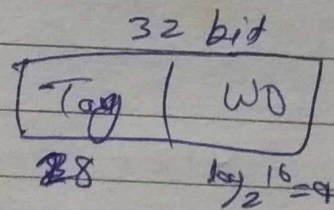 32 bit
Tag | WO
28 log₂16=4